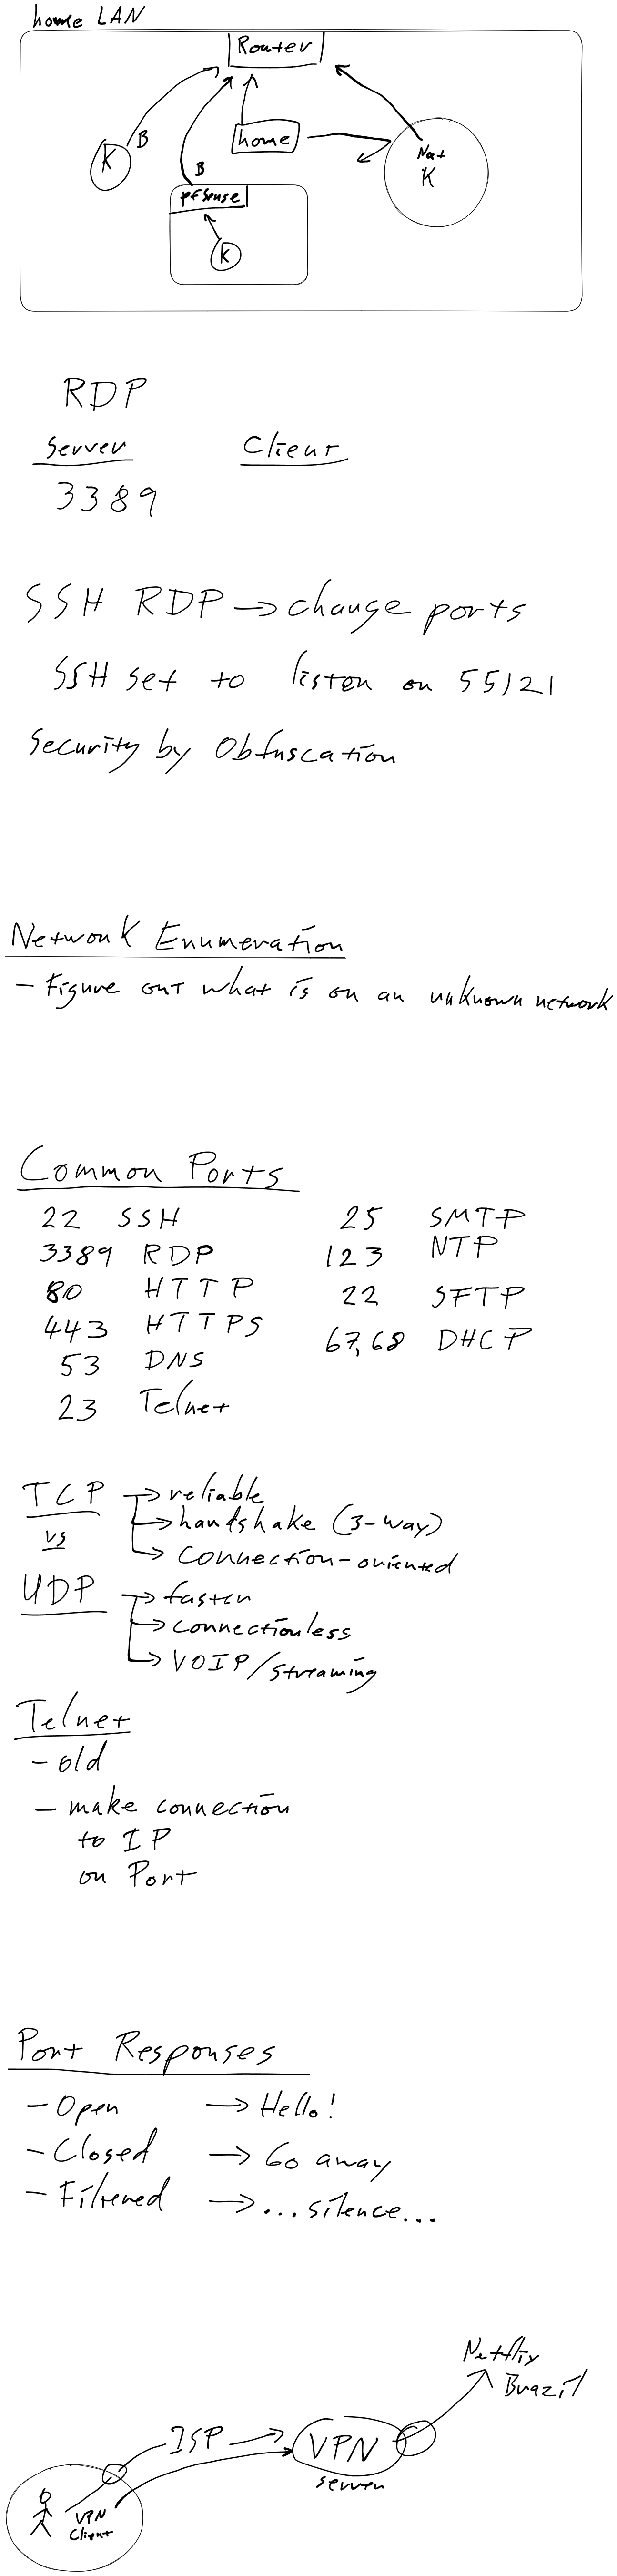 home LAN
Router
K B
B
home
Nat
K
pfSense
K
RDP
Server Client
3389
SSH RDP → change ports
SSH set to listen on 55121
Security by Obfuscation
Network Enumeration
- Figure out what is on an unknown network
Common Ports
22 SSH 25 SMTP
3389 RDP 123 NTP
80 HTTP 22 SFTP
443 HTTPS 67,68 DHCP
53 DNS
23 Telnet
TCP → reliable
vs → handshake (3-way)
→ connection-oriented
UDP → faster
→ connectionless
→ VOIP/streaming
Telnet
- old
- make connection
to IP
on Port
Port Responses
- Open → Hello!
- Closed → Go away
- Filtered → ...silence...
Netflix
Brazil
ISP → VPN
server
VPN
Client